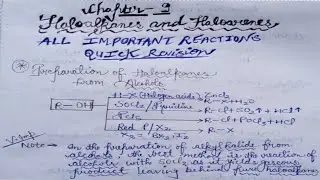 Chapter - 9
Haloalkanes and Haloarenes
ALL IMPORTANT REACTIONS
QUICK Revision
Preparation of Haloalkanes
From Alcohols
H-X (Halogen acids), ZnCl2
R-X + H2O
R-OH
SOCl2 / pyridine
R-Cl + SO2↑ + HCl↑
PCl5
R-Cl + POCl3 + HCl
Red P/X2
R-X
X2 = Br2, I2
Note → In the preparation of alkylhalide from
alcohols, the best method is the reaction of
alcohols with SOCl2 as it yields gaseous
product leaving behind pure haloalkane